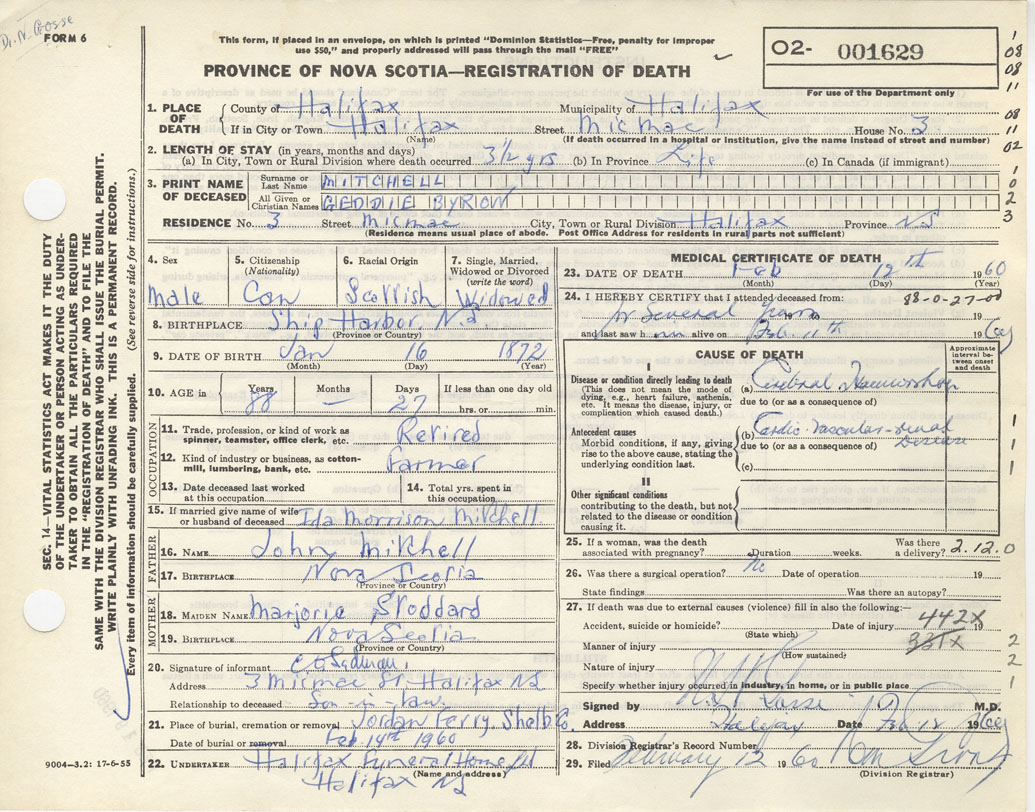 Dr. N. Gosse
FORM 6
This form, if placed in an envelope, on which is printed "Dominion Statistics—Free, penalty for improper
use $50," and properly addressed will pass through the mail "FREE"
PROVINCE OF NOVA SCOTIA—REGISTRATION OF DEATH
O2- 001629
For use of the Department only
1. PLACE OF DEATH
County of Halifax Municipality of Halifax
If in City or Town Halifax Street Micmac House No. 3
(Name) (If death occurred in a hospital or institution, give the name instead of street and number)
2. LENGTH OF STAY (in years, months and days)
(a) In City, Town or Rural Division where death occurred 3½ yrs (b) In Province Life (c) In Canada (if immigrant)
3. PRINT NAME OF DECEASED
Surname or Last Name MITCHELL
All Given or Christian Names GEDDIE BYRON
RESIDENCE No. 3 Street Micmac City, Town or Rural Division Halifax Province NS
(Residence means usual place of abode. Post Office Address for residents in rural parts not sufficient)
4. Sex Male
5. Citizenship (Nationality) Can
6. Racial Origin Scottish
7. Single, Married, Widowed or Divorced (write the word) Widowed
8. BIRTHPLACE Ship Harbor, N.S.
(Province or Country)
9. DATE OF BIRTH Jan 16 1872
(Month) (Day) (Year)
10. AGE in Years 88 Months — Days 27 If less than one day old hrs. or min.
OCCUPATION
11. Trade, profession, or kind of work as spinner, teamster, office clerk, etc. Retired
12. Kind of industry or business, as cotton-mill, lumbering, bank, etc. Farmer
13. Date deceased last worked at this occupation
14. Total yrs. spent in this occupation
15. If married give name of wife or husband of deceased Ida Morrison Mitchell
FATHER
16. NAME John Mitchell
17. BIRTHPLACE Nova Scotia
(Province or Country)
MOTHER
18. MAIDEN NAME Marjorie Stoddard
19. BIRTHPLACE Nova Scotia
(Province or Country)
20. Signature of informant
Address 3 Micmac St. Halifax NS
Relationship to deceased Son-in-law.
21. Place of burial, cremation or removal Jordan Ferry, Shelb. Co.
Date of burial or removal Feb 14th 1960
22. UNDERTAKER Halifax Funeral Home
(Name and address)
Halifax NS
9004—3.2: 17-6-55
MEDICAL CERTIFICATE OF DEATH
23. DATE OF DEATH Feb 12th 1960
(Month) (Day) (Year)
24. I HEREBY CERTIFY that I attended deceased from: 88-0-27-00
for Several Years 19
and last saw him alive on Feb. 11th 19 60
CAUSE OF DEATH
Approximate interval between onset and death
I
Disease or condition directly leading to death
(This does not mean the mode of dying, e.g., heart failure, asthenia, etc. It means the disease, injury, or complication which caused death.)
(a) Cerebral Haemorrhage
due to (or as a consequence of)
Antecedent causes
Morbid conditions, if any, giving rise to the above cause, stating the underlying condition last.
(b) Cardio-vascular-renal disease
due to (or as a consequence of)
(c)
II
Other significant conditions contributing to the death, but not related to the disease or condition causing it.
25. If a woman, was the death associated with pregnancy? Duration weeks. Was there a delivery? 2.12.0
26. Was there a surgical operation? No Date of operation 19
State findings Was there an autopsy?
27. If death was due to external causes (violence) fill in also the following:—
442X
Accident, suicide or homicide? Date of injury 19
(State which) 331X
Manner of injury
(How sustained)
Nature of injury
Specify whether injury occurred in industry, in home, or in public place
Signed by N. Gosse M.D.
Address Halifax Date Feb 12 1960
28. Division Registrar's Record Number
29. Filed February 12 1960
(Division Registrar)
SEC. 14—VITAL STATISTICS ACT MAKES IT THE DUTY
OF THE UNDERTAKER OR PERSON ACTING AS UNDER-
TAKER TO OBTAIN ALL THE PARTICULARS REQUIRED
IN THE "REGISTRATION OF DEATH" AND TO FILE THE
SAME WITH THE DIVISION REGISTRAR WHO SHALL ISSUE THE BURIAL PERMIT.
WRITE PLAINLY WITH UNFADING INK. THIS IS A PERMANENT RECORD.
Every item of information should be carefully supplied. (See reverse side for instructions.)
1
08
08
11
08
11
02
1
0
2
3
1
1
1
2
2
1